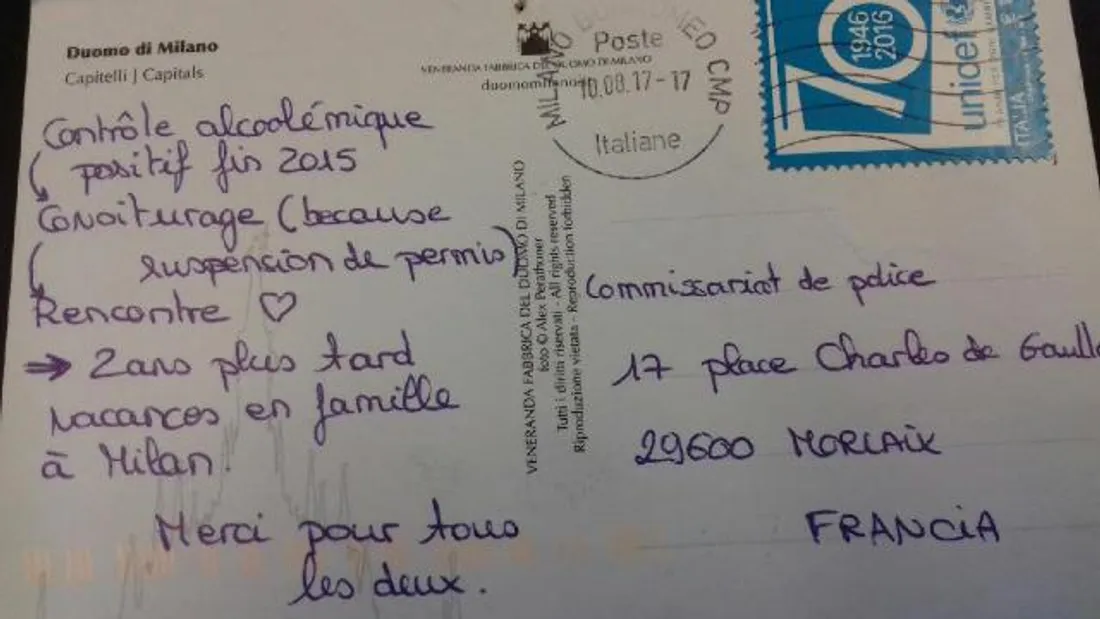 Duomo di Milano
Capitelli | Capitals
Contrôle alcoolémique
positif fin 2015
Covoiturage (because
suspension de permis)
Rencontre ♡
→ 2 ans plus tard
vacances en famille
à Milan.
Merci pour tous
les deux.
VENERANDA FABBRICA DEL DUOMO DI MILANO
duomomilano.it
VENERANDA FABBRICA DEL DUOMO DI MILANO
foto © Alex Perathoner
Tutti i diritti riservati - All rights reserved
Riproduzione vietata - Reproduction forbidden
MILANO BORROMEO CMP
Poste
10.08.17-17
Italiane
70
1946
2016
unicef
ITALIA
Commissariat de police
17 place Charles de Gaulle
29600 MORLAIX
FRANCIA